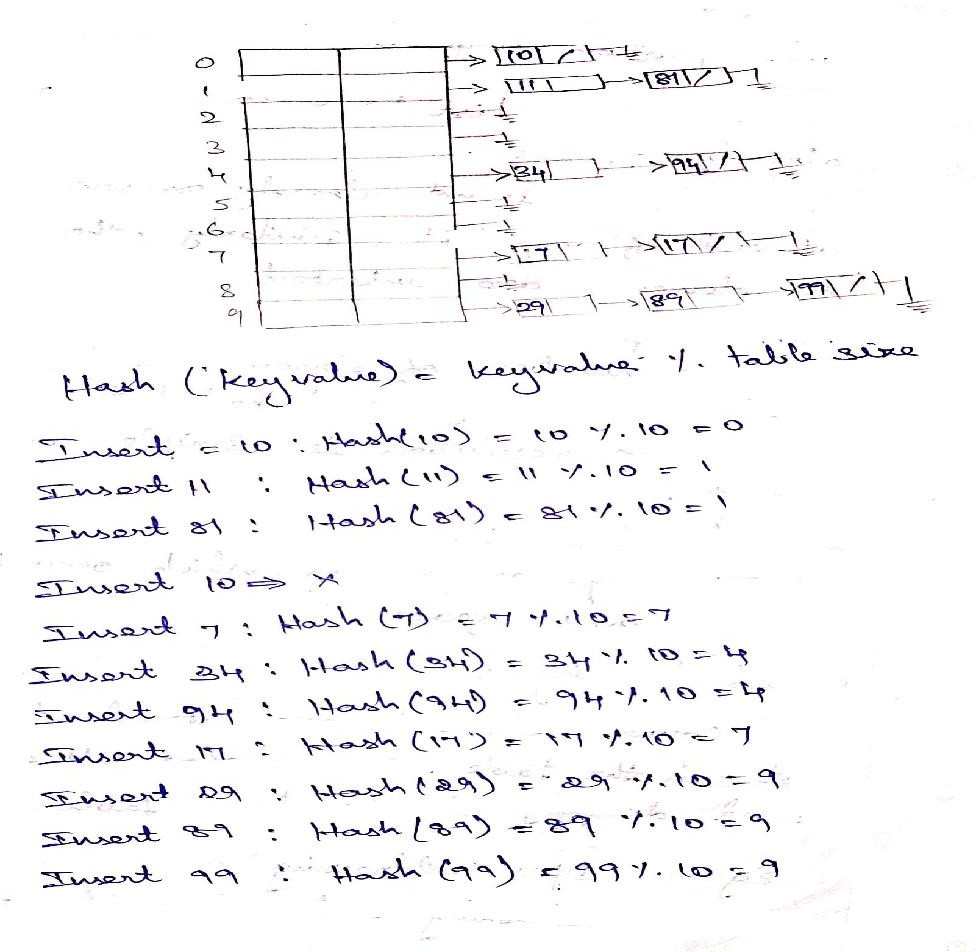 0 10
1 11 81
2
3
4 34 94
5
6
7 7 17
8
9 29 89 99
Hash (keyvalue) = keyvalue % table size
Insert = 10 : Hash(10) = 10 % 10 = 0
Insert 11 : Hash (11) = 11 % 10 = 1
Insert 81 : Hash (81) = 81 % 10 = 1
Insert 10 ⇒ x
Insert 7 : Hash (7) = 7 % 10 = 7
Insert 34 : Hash (34) = 34 % 10 = 4
Insert 94 : Hash (94) = 94 % 10 = 4
Insert 17 : Hash (17) = 17 % 10 = 7
Insert 29 : Hash (29) = 29 % 10 = 9
Insert 89 : Hash (89) = 89 % 10 = 9
Insert 99 : Hash (99) = 99 % 10 = 9